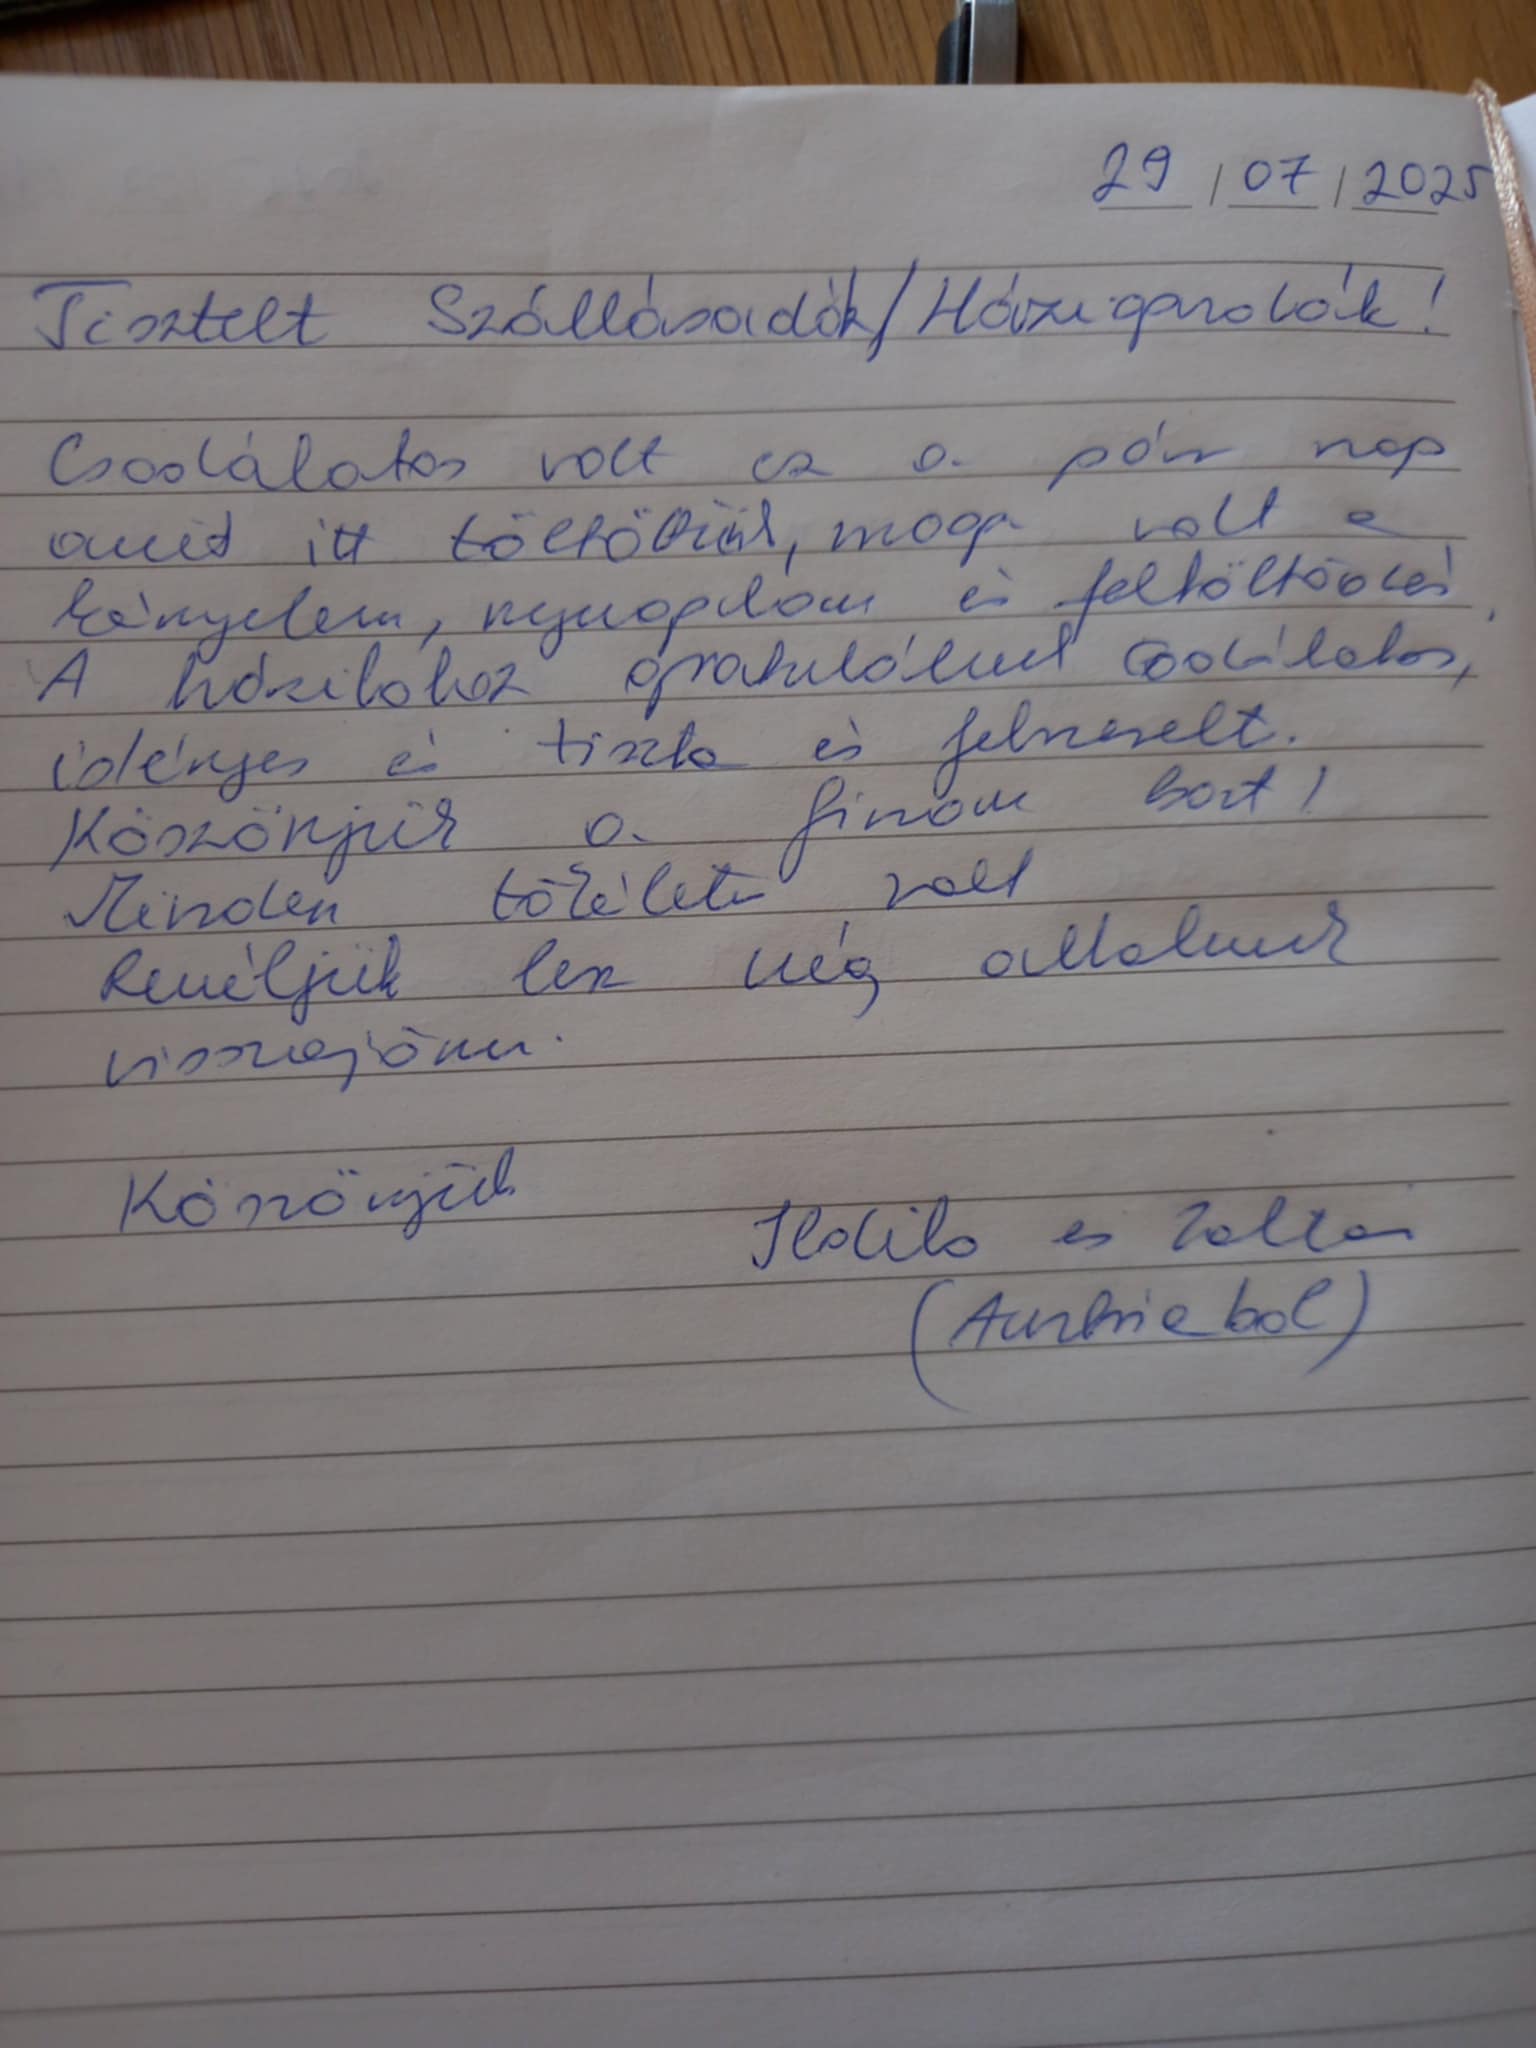 29 / 07 / 2025
Tisztelt Szállásadók/Házigazdák!
Csodálatos volt ez a pár nap
amit itt töltöttünk, maga volt a
kényelem, nyugalom és feltöltödés.
A házikohoz gratulálunk csodálatos,
idényes és tiszta és felszerelt.
Köszönjük a finom bort!
Minden tökéletes volt
Reméljük lesz még alkalmunk
visszajönni.
Köszönjük
Ildiko es Zoltan
(Austriabol)